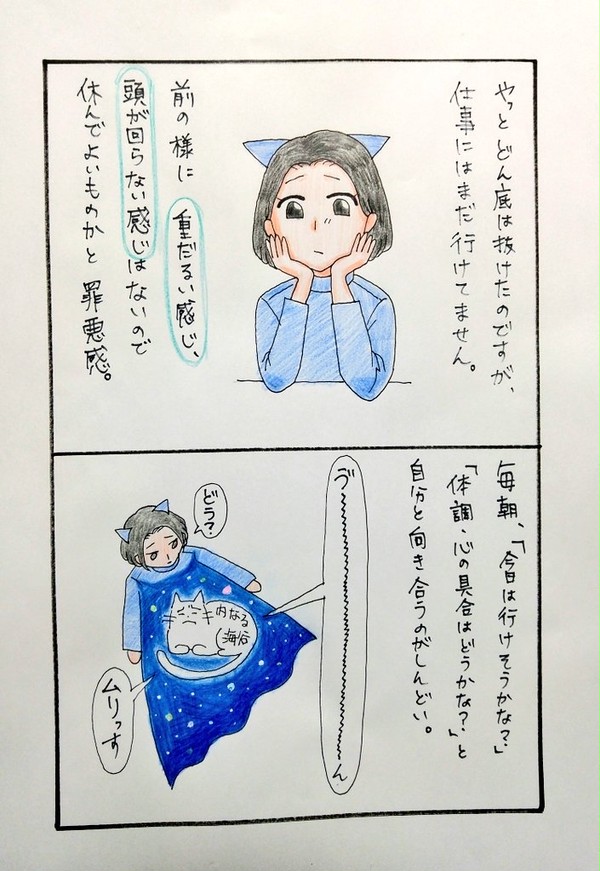 やっと どん底は抜けたのですが、
仕事にはまだ行けてません。
前の様に 重だるい感じ、
頭が回らない感じはないので
休んでよいものかと 罪悪感。
毎朝、「今日は行けそうかな？」
「体調・心の具合はどうかな？」と
自分と向き合うのがしんどい。
ゔ〜〜〜〜〜〜〜〜〜〜〜〜〜ん
どう？
内なる
海谷
ムリっす